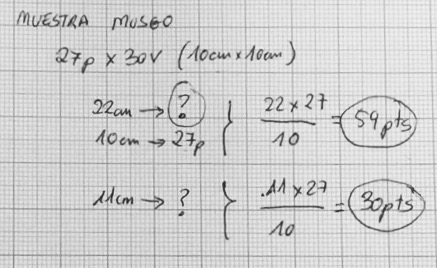 MUESTRA MUSEO
27p x 30V (10cm x 10cm)
22cm → ?
10cm → 27p
22 x 27
10
= 59pts
11cm → ?
.11 x 27
10
= 30pts